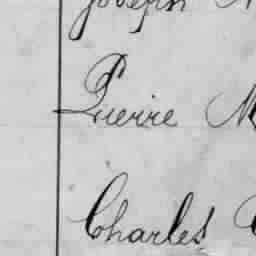 Joseph
Pierre M
Charles